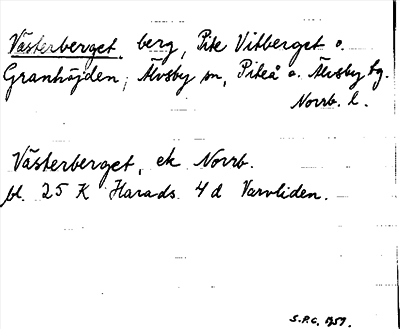 Västerberget, berg, Pite Vitberget o.
Granhöjden, Älvsby sn, Piteå o. Älvsby tg.
Norrb. l.
Västerberget, ek Norrb.
bl. 25 K Harads 4 d Varvliden.
S.P.C. 1959.